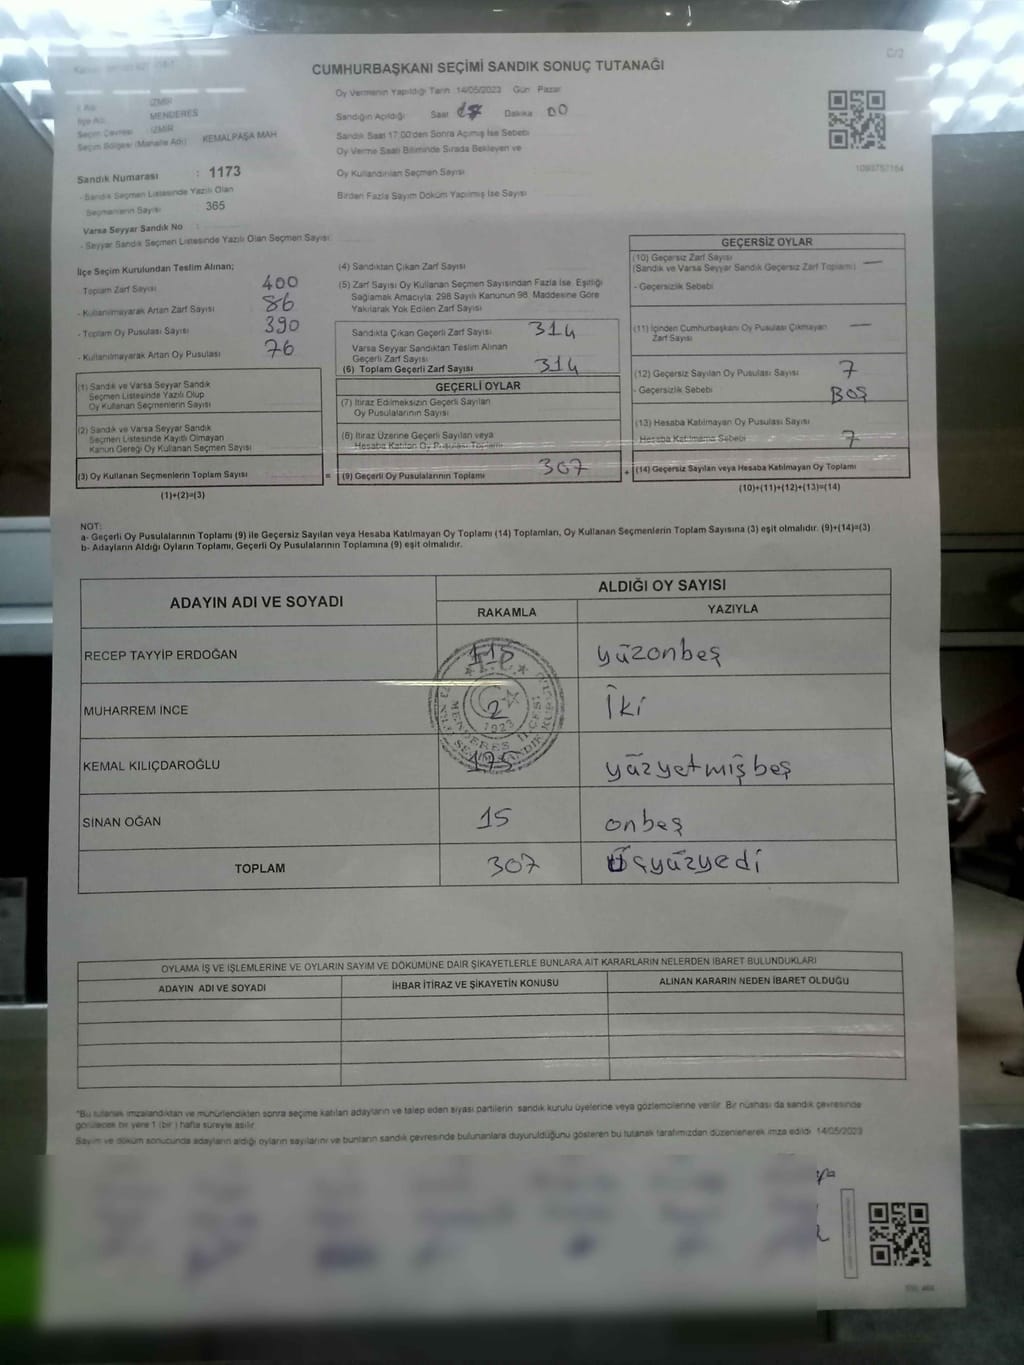 CUMHURBAŞKANI SEÇİMİ SANDIK SONUÇ TUTANAĞI
C/2
İl Adı : İZMİR
İlçe Adı : MENDERES
Seçim Çevresi : İZMİR
Seçim Bölgesi (Mahalle Adı) : KEMALPAŞA MAH
Sandık Numarası : 1173
- Sandık Seçmen Listesinde Yazılı Olan
Seçmenlerin Sayısı : 365
Varsa Seyyar Sandık No :
- Seyyar Sandık Seçmen Listesinde Yazılı Olan Seçmen Sayısı:
Oy Vermenin Yapıldığı Tarih 14/05/2023 Gün Pazar
Sandığın Açıldığı Saat 17 Dakika 00
Sandık Saat 17:00'den Sonra Açımış İse Sebebi
Oy Verme Saati Bitiminde Sırada Bekleyen ve
Oy Kullandırılan Seçmen Sayısı
Birden Fazla Sayım Döküm Yapılmış İse Sayısı
1099757164
İlçe Seçim Kurulundan Teslim Alınan;
- Toplam Zarf Sayısı 400
- Kullanılmayarak Artan Zarf Sayısı 86
- Toplam Oy Pusulası Sayısı 390
- Kullanılmayarak Artan Oy Pusulası 76
(1) Sandık ve Varsa Seyyar Sandık
Seçmen Listesinde Yazılı Olup
Oy Kullanan Seçmenlerin Sayısı
(2) Sandık ve Varsa Seyyar Sandık
Seçmen Listesinde Kayıtlı Olmayan
Kanun Gereği Oy Kullanan Seçmen Sayısı
(3) Oy Kullanan Seçmenlerin Toplam Sayısı
(1)+(2)=(3)
(4) Sandıktan Çıkan Zarf Sayısı
(5) Zarf Sayısı Oy Kullanan Seçmen Sayısından Fazla İse, Eşitliği
Sağlamak Amacıyla; 298 Sayılı Kanunun 98. Maddesine Göre
Yakılarak Yok Edilen Zarf Sayısı
Sandıkta Çıkan Geçerli Zarf Sayısı 314
Varsa Seyyar Sandıktan Teslim Alınan
Geçerli Zarf Sayısı
(6) Toplam Geçerli Zarf Sayısı 314
GEÇERLİ OYLAR
(7) İtiraz Edilmeksizin Geçerli Sayılan
Oy Pusulalarının Sayısı
(8) İtiraz Üzerine Geçerli Sayılan veya
Hesaba Katılan Oy Pusulası Toplamı
= (9) Geçerli Oy Pusulalarının Toplamı 307
GEÇERSİZ OYLAR
(10) Geçersiz Zarf Sayısı
(Sandık ve Varsa Seyyar Sandık Geçersiz Zarf Toplamı) —
- Geçersizlik Sebebi
(11) İçinden Cumhurbaşkanı Oy Pusulası Çıkmayan —
Zarf Sayısı
(12) Geçersiz Sayılan Oy Pusulası Sayısı 7
- Geçersizlik Sebebi BOŞ
(13) Hesaba Katılmayan Oy Pusulası Sayısı
Hesaba Katılmama Sebebi 7
+ (14) Geçersiz Sayılan veya Hesaba Katılmayan Oy Toplamı
(10)+(11)+(12)+(13)=(14)
NOT:
a- Geçerli Oy Pusulalarının Toplamı (9) ile Geçersiz Sayılan veya Hesaba Katılmayan Oy Toplamı (14) Toplamları, Oy Kullanan Seçmenlerin Toplam Sayısına (3) eşit olmalıdır. (9)+(14)=(3)
b- Adayların Aldığı Oyların Toplamı, Geçerli Oy Pusulalarının Toplamına (9) eşit olmalıdır.
ADAYIN ADI VE SOYADI
ALDIĞI OY SAYISI
RAKAMLA YAZIYLA
RECEP TAYYİP ERDOĞAN 115 yüzonbeş
MUHARREM İNCE 2 İki
KEMAL KILIÇDAROĞLU 175 yüzyetmişbeş
SİNAN OĞAN 15 onbeş
TOPLAM 307 Üçyüzyedi
T.C.
1923
MENDERES İLÇESİ
OYLAMA İŞ VE İŞLEMLERİNE VE OYLARIN SAYIM VE DÖKÜMÜNE DAİR ŞİKAYETLERLE BUNLARA AİT KARARLARIN NELERDEN İBARET BULUNDUKLARI
ADAYIN ADI VE SOYADI İHBAR İTİRAZ VE ŞİKAYETİN KONUSU ALINAN KARARIN NEDEN İBARET OLDUĞU
*Bu tutanak imzalandıktan ve mühürlendikten sonra seçime katılan adayların ve talep eden siyasi partilerin sandık kurulu üyelerine veya gözlemcilerine verilir. Bir nüshası da sandık çevresinde
görülecek bir yere 1 (bir ) hafta süreyle asılır.
Sayım ve döküm sonucunda adayların aldığı oyların sayılarını ve bunların sandık çevresinde bulunanlara duyurulduğunu gösteren bu tutanak tarafımızdan düzenlenerek imza edildi 14/05/2023